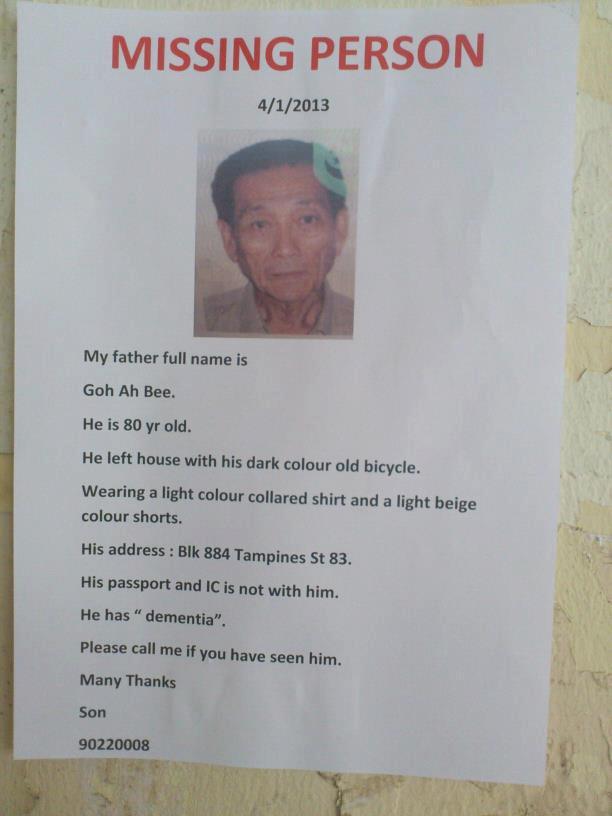 MISSING PERSON
4/1/2013
My father full name is
Goh Ah Bee.
He is 80 yr old.
He left house with his dark colour old bicycle.
Wearing a light colour collared shirt and a light beige
colour shorts.
His address : Blk 884 Tampines St 83.
His passport and IC is not with him.
He has “ dementia”.
Please call me if you have seen him.
Many Thanks
Son
90220008